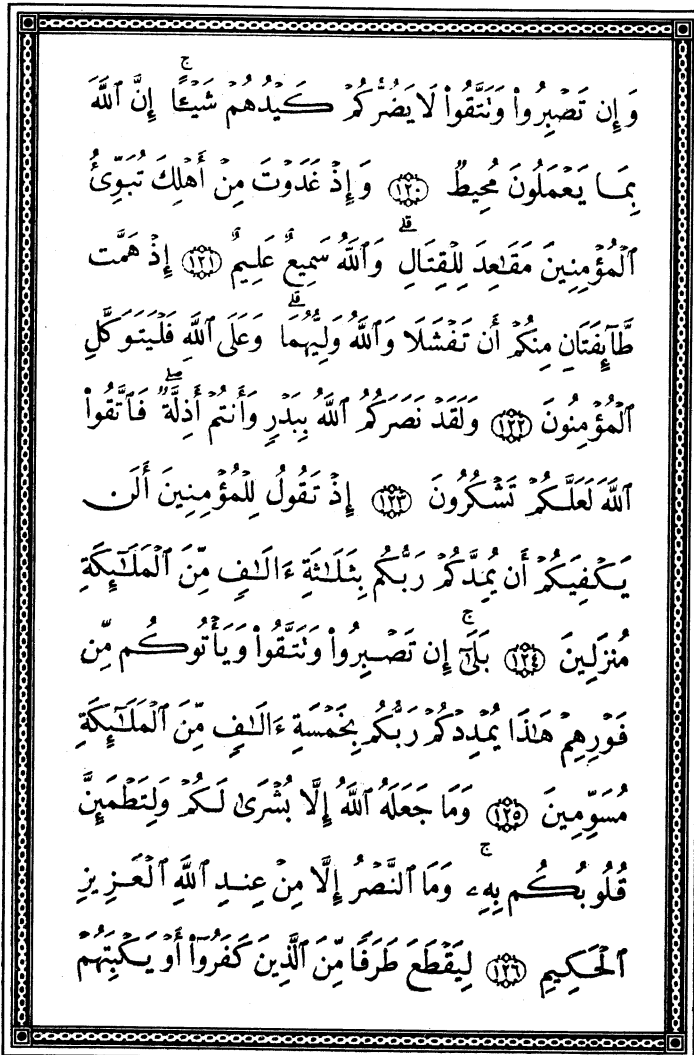 وَإِن تَصۡبِرُواْ وَتَتَّقُواْ لَا يَضُرُّكُمۡ كَيۡدُهُمۡ شَيۡـًٔاۚ إِنَّ ٱللَّهَ
بِمَا يَعۡمَلُونَ مُحِيطٞ ١٢٠ وَإِذۡ غَدَوۡتَ مِنۡ أَهۡلِكَ تُبَوِّئُ
ٱلۡمُؤۡمِنِينَ مَقَٰعِدَ لِلۡقِتَالِۗ وَٱللَّهُ سَمِيعٌ عَلِيمٌ ١٢١ إِذۡ هَمَّت
طَّآئِفَتَانِ مِنكُمۡ أَن تَفۡشَلَا وَٱللَّهُ وَلِيُّهُمَاۗ وَعَلَى ٱللَّهِ فَلۡيَتَوَكَّلِ
ٱلۡمُؤۡمِنُونَ ١٢٢ وَلَقَدۡ نَصَرَكُمُ ٱللَّهُ بِبَدۡرٖ وَأَنتُمۡ أَذِلَّةٞۖ فَٱتَّقُواْ
ٱللَّهَ لَعَلَّكُمۡ تَشۡكُرُونَ ١٢٣ إِذۡ تَقُولُ لِلۡمُؤۡمِنِينَ أَلَن
يَكۡفِيَكُمۡ أَن يُمِدَّكُمۡ رَبُّكُم بِثَلَٰثَةِ ءَالَٰفٖ مِّنَ ٱلۡمَلَٰٓئِكَةِ
مُنزَلِينَ ١٢٤ بَلَىٰٓۚ إِن تَصۡبِرُواْ وَتَتَّقُواْ وَيَأۡتُوكُم مِّن
فَوۡرِهِمۡ هَٰذَا يُمۡدِدۡكُمۡ رَبُّكُم بِخَمۡسَةِ ءَالَٰفٖ مِّنَ ٱلۡمَلَٰٓئِكَةِ
مُسَوِّمِينَ ١٢٥ وَمَا جَعَلَهُ ٱللَّهُ إِلَّا بُشۡرَىٰ لَكُمۡ وَلِتَطۡمَئِنَّ
قُلُوبُكُم بِهِۦۚ وَمَا ٱلنَّصۡرُ إِلَّا مِنۡ عِندِ ٱللَّهِ ٱلۡعَزِيزِ
ٱلۡحَكِيمِ ١٢٦ لِيَقۡطَعَ طَرَفٗا مِّنَ ٱلَّذِينَ كَفَرُوٓاْ أَوۡ يَكۡبِتَهُمۡ